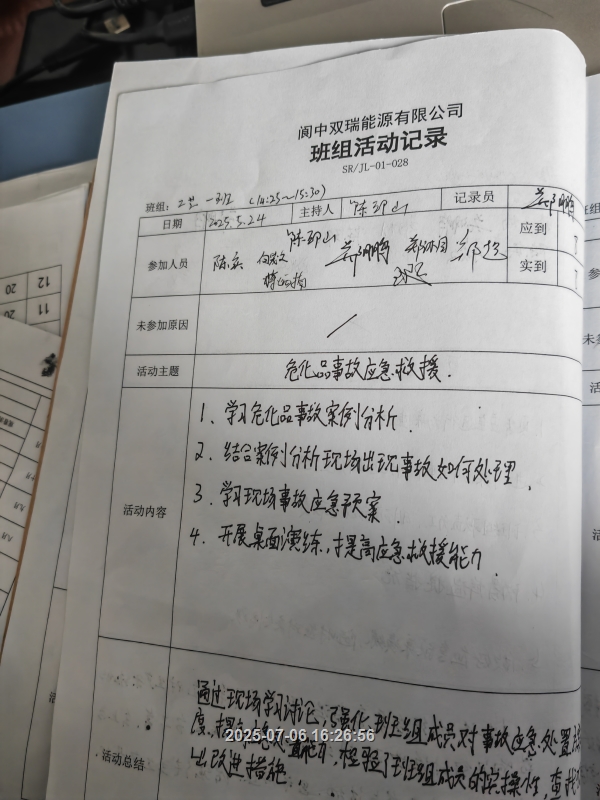 阆中双瑞能源有限公司
班组活动记录
SR/JL-01-028
班组: 一班 (14:25～15:30)
日期 2025.5.24 主持人 陈邛山 记录员
应到
参加人员 陈兵 陈邛山
实到
未参加原因 /
活动主题 危化品事故应急救援.
活动内容
1、学习危化品事故案例分析.
2、结合案例分析现场出现事故如何处理.
3、学习现场事故应急预案.
4、开展桌面演练,提高应急救援能力.
活动总结
通过现场学习讨论,强化班组成员对事故应急处置
度,提高应急处置能力,检验了班组成员的实操性,查找
出改进措施.
2025-07-06 16:26:56
12 20
11 20